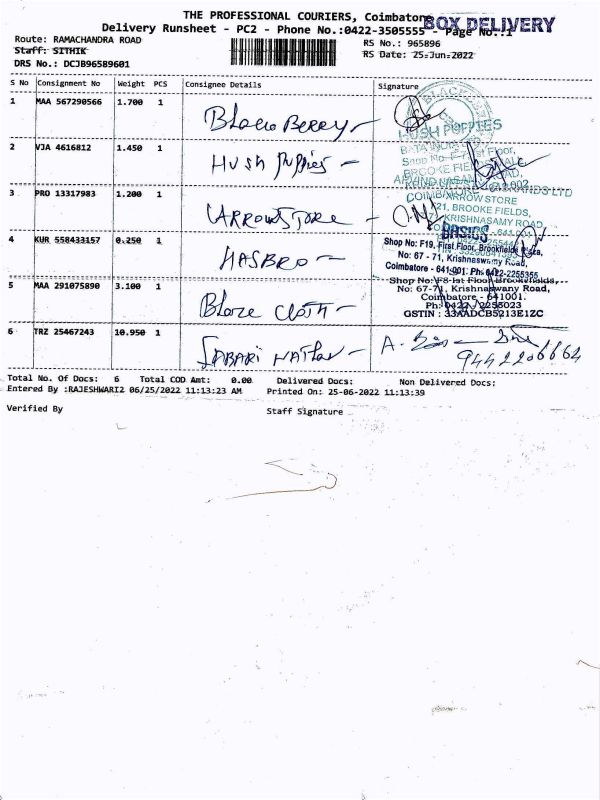 THE PROFESSIONAL COURIERS, Coimbatore
BOX DELIVERY
Delivery Runsheet - PC2 - Phone No.:0422-3505555 - Page No.:1
Route: RAMACHANDRA ROAD
RS No.: 965896
Staff: SITHIK
RS Date: 25-Jun-2022
DRS No.: DCJB96589601
S No Consignment No Weight PCS Consignee Details Signature
1 MAA 567290566 1.700 1 Blackberry -
HUSH PUPPIES
BATA INDIA
2 VJA 4616812 1.450 1 Hush puppies -
3 PRO 13317983 1.200 1 ARROWSTORE -
COIMB/ARROW STORE
121, BROOKE FIELDS,
KRISHNASAMY ROAD,
4 KUR 558433157 0.250 1 HASBRO -
BASICS
Shop No: F19, First Floor, Brookfields Plaza,
No: 67 - 71, Krishnaswamy Road,
Coimbatore - 641 001. Ph: 0422-2255355
5 MAA 291075890 3.100 1
Shop No: F8-Ist Floor Brookefields,
No: 67-71, Krishnaswany Road,
Coimbatore - 641001.
Ph: 0422 / 2255023
GSTIN : 33AADCB5213E1ZC
6 TRZ 25467243 10.950 1
9442206662
Total No. Of Docs: 6 Total COD Amt: 0.00 Delivered Docs: Non Delivered Docs:
Entered By :RAJESHWARI2 06/25/2022 11:13:23 AM Printed On: 25-06-2022 11:13:39
Verified By Staff Signature